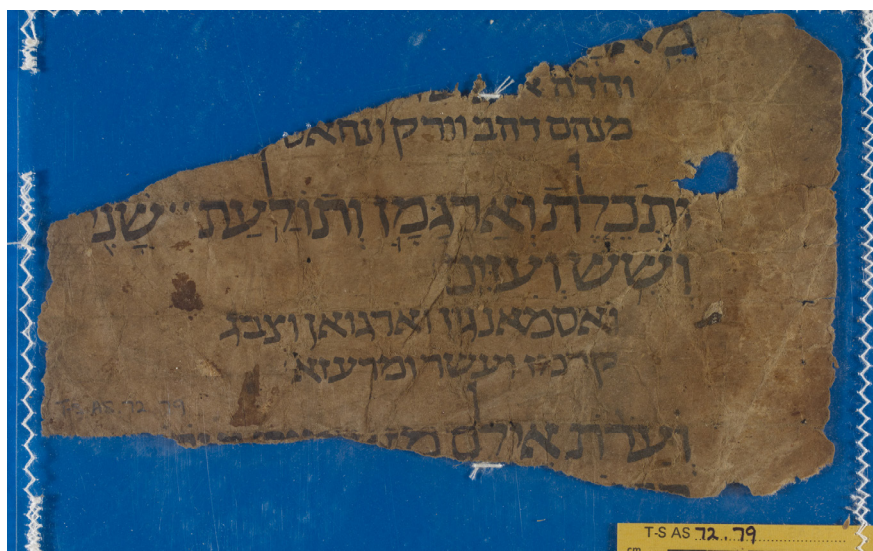 והדה
מנהם דהב וורק ונחאס
וּתְכֵלֶת וְאַרְגָּמָן וְתוֹלַעַת שָׁנִי
וְשֵׁשׁ וְעִזִּים
ואסמאנגון וארגואן וצבג
קרמז ועשר ומרעזא
וְערֹת אֵילִם
T-S AS 72.79
T-S AS 72.79
cm